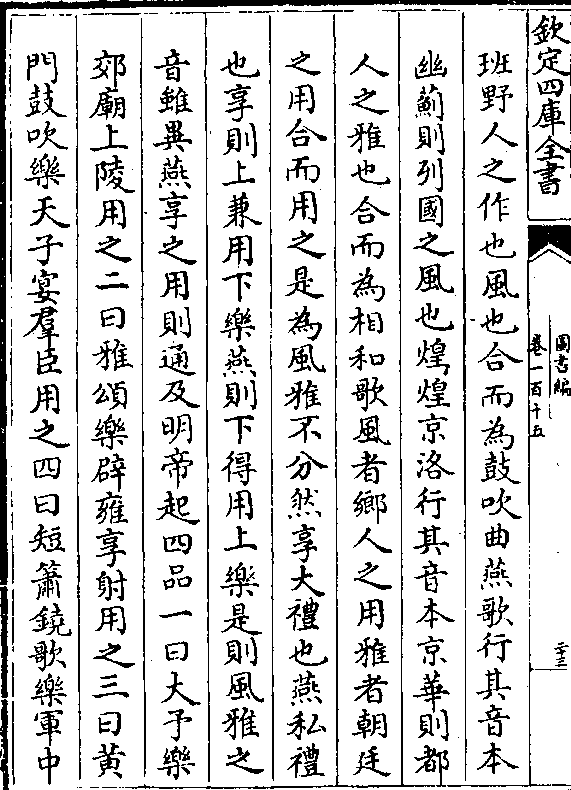 欽定四庫全書
圖書編
卷一百十五
二十三
班野人之作也風也合而為鼓吹曲燕歌行其音本
幽薊則列國之風也煌煌京洛行其音本京華則都
人之雅也合而為相和歌風者鄉人之用雅者朝廷
之用合而用之是為風雅不分然享大禮也燕私禮
也享則上兼用下樂燕則下得用上樂是則風雅之
音雖異燕享之用則通及明帝起四品一曰大予樂
郊廟上陵用之二曰雅頌樂辟雍享射用之三曰黄
門鼓吹樂天子宴羣臣用之四曰短簫鐃歌樂軍中